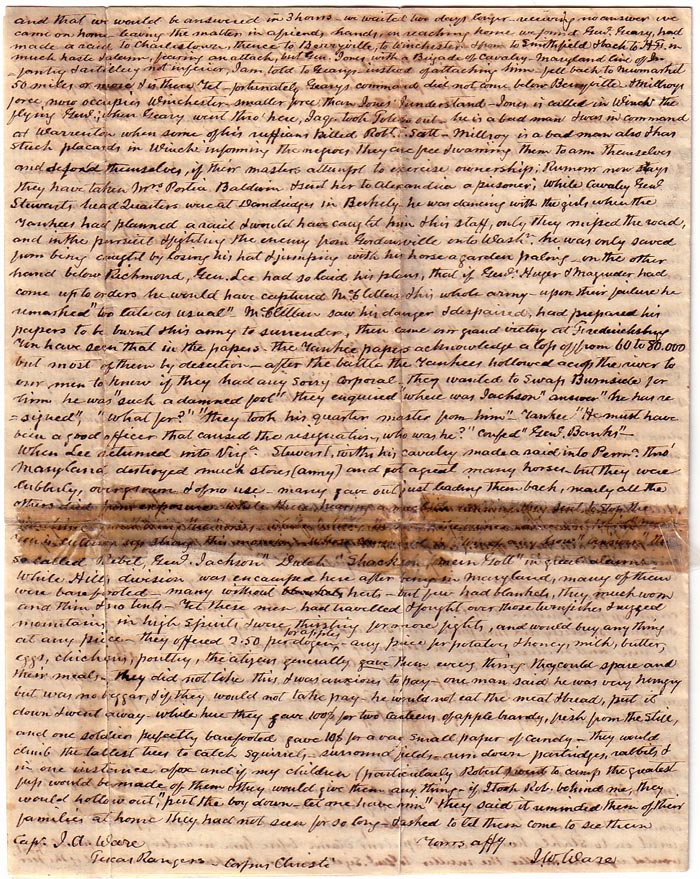 and that we would be answered in 3 hours - we waited two days longer - receiving no answer we
came on home leaving the matter in a friends hands, on reaching home we found Genl. Geary, had
made a raid to Charlestown, thence to Berryville, to Winchester & from to Smithfield & back to H.F. in
much haste & alarm, fearing an attack, but Genl. Jones with a Brigade of Cavalry Maryland line of In-
-fantry & artillery not inferior, I am told to Gearys instead of attacking him - fell back to Newmarket
50 miles or more & is there yet - fortunately Gearys command did not come below Berryville - & Millroys
force now occupies Winchester - smaller force than Jones' I understand - Jones is called in Winchr the
flying Genl; when Geary went thro' here, he is a bad man & was in command
at Warrenton when some of his ruffians killed Robt. Scott - Millroy is a bad man also & has
stuck placards in Winchr informing the negroes they are free & warning them to arm themselves
and defend themselves, if their masters attempt to exercise ownership; Rumour now says
they have taken Mrs Portia Baldwin & sent her to Alexandria a prisoner; While Cavalry Genl
Stewarts head Quarters were at Dandridges in Berkely he was dancing with the girls, when the
Yankees had planned a raid & would have caught him & his staff, only they missed the road,
and in the pursuit & fighting the enemy from Gordonsville on to Wash. he was only saved
from being caught by losing his hat & jumping with his horse a garden paling - on the other
hand below Richmond, Gen. Lee had so laid his plans, that if Genls Huger & Magruder had
come up to orders he would have captured McClellan & his whole army - upon their failure he
remarked "too late as usual". McClellan saw his danger & despaired, had prepared his
papers to be burnt & his army to surrender, then came our grand victory at Fredericksburg
You have seen that in the papers - the Yankee papers acknowledge a loss of from 60 to 80.000
but most of them by desertion - after the battle the Yankees hollowed across the river to
our men to know if they had any Sorry Corporal they wanted to swap Burnside for
him he was "such a damned fool" they enquired "where was Jackson" answer "he has re
=signed", "what for?" "they took his quarter master from him" - Yankee "He must have
been a good officer that caused the resignation, who was he?" Confed "Genl. Banks" -
When Lee returned into Virga. Stewart, with his cavalry made a raid into Penna. thro'
Maryland, destroyed much stores (army) and got a great many horses - but they were
lubberly, overgrown & of no use - many gave out just leading them back, nearly all the
others died from exposure - while there
so called Rebel, Genl. Jackson" Dutch "Shackson mein Gott" in great alarm -
While Hills division was encamped here after being in Maryland, many of them
were barefooted - many without hats - but few had blankets, they much worn
and thin & no tents - Yet these men had travelled & fought over those turnpikes & rugged
mountains in high spirits & were thirsting for more fights, and would buy any thing
at any price - they offered 2.50 per dozen for apples - any price for potatoes & honey, milk, butter,
eggs, chickens, poultry, the citizens generally gave them every thing they could spare and
their meals - they did not like this & was anxious to pay - one man said he was very hungry
but was no beggar, & if they would not take pay - he would not eat the meat & bread, put it
down & went away - while here they gave 100$ for two canteens of apple brandy, fresh from the still,
and one soldier perfectly barefooted gave 10$ for a very small paper of candy - they would
climb the tallest trees to catch squirrels - surround fields - run down partridges, rabbits &
in one instance a fox and if my children (particularly Robert) went to camp the greatest
fuss would be made of them & they would give them any thing - if I took Robt. behind me, they
would hollow out "put the boy down - let one have him" they said it reminded them of their
families at home they had not seen for so long - & asked to let them come to see them
Capt. J. A. Ware Yours affy.
Texas Rangers - Corpus Christi J. W. Ware